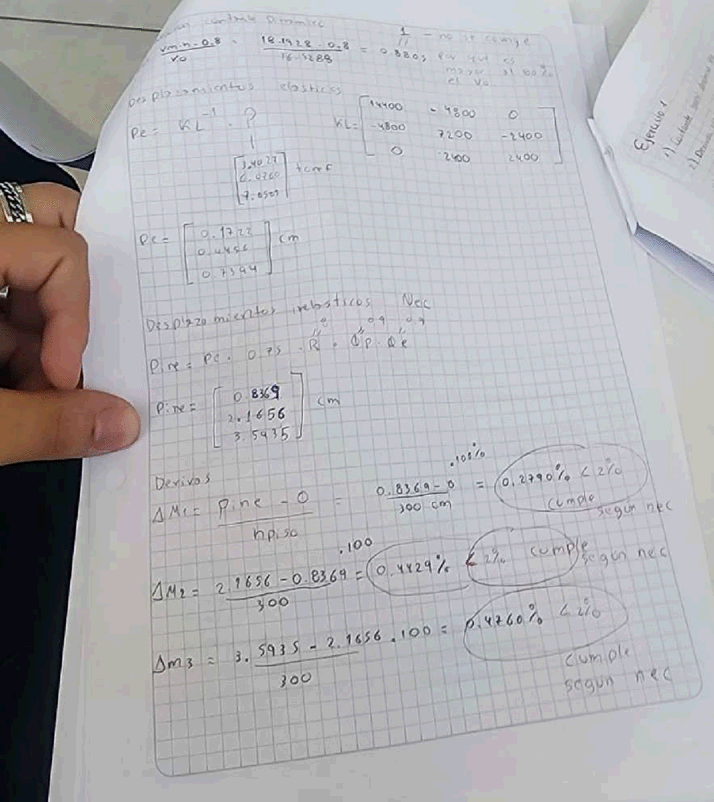 cortante Dinamico
Vmin · 0.8 / Vo = 18.1928 · 0.8 / 16.5288 = 0.8805
1 – no se cumple
por que es
mayor al 100%
el Vo
Desplazamientos elasticos
De = KL⁻¹ · ?
KL = [14400 -4800 0
-4800 7200 -2400
0 2400 2400]
tonf
De = [0.1722
0.4456
0.7394] cm
Desplazamientos inelasticos Nec
Dine = De · 0.75 · R · Øp · Øe
Dine = [0.8369
2.1656
3.5935] cm
Derivas
ΔM1 = Dine - 0 / hpiso = 0.8369 - 0 / 300 cm .100% = 0.2790% < 2%
cumple
segun nec
ΔM2 = 2.1656 - 0.8369 / 300 .100 = 0.4429% < 2% cumple
segun nec
Δm3 = 3.5935 - 2.1656 / 300 .100 = 0.4760% < 2%
cumple
segun nec
Ejercicio 1
1) Cortante
2) Derivas